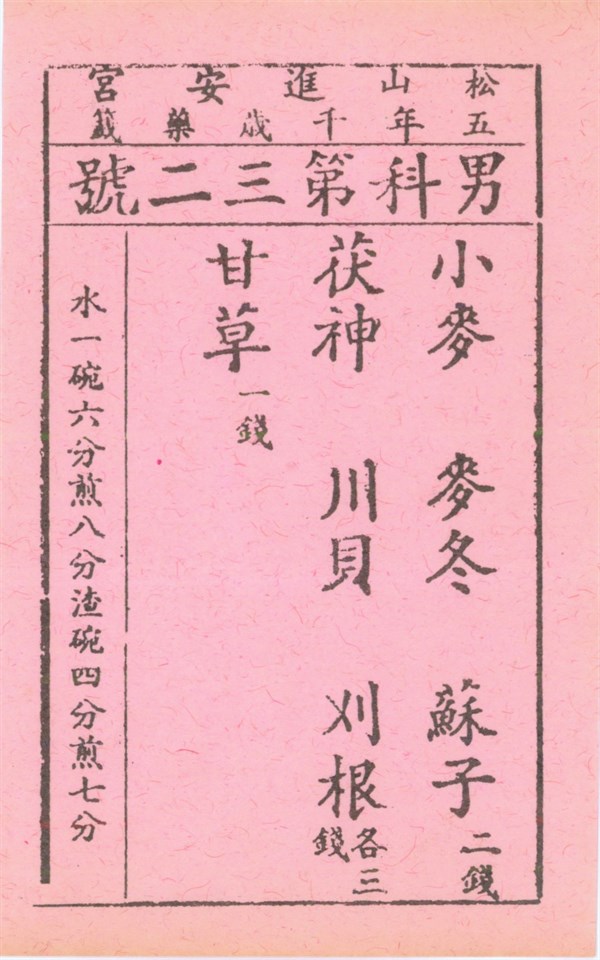 松山進安宮
五年千歲藥籤
男科第三二號
小麥 麥冬 蘇子二錢
茯神 川貝 刈根各三錢
甘草一錢
水一碗六分煎八分渣碗四分煎七分